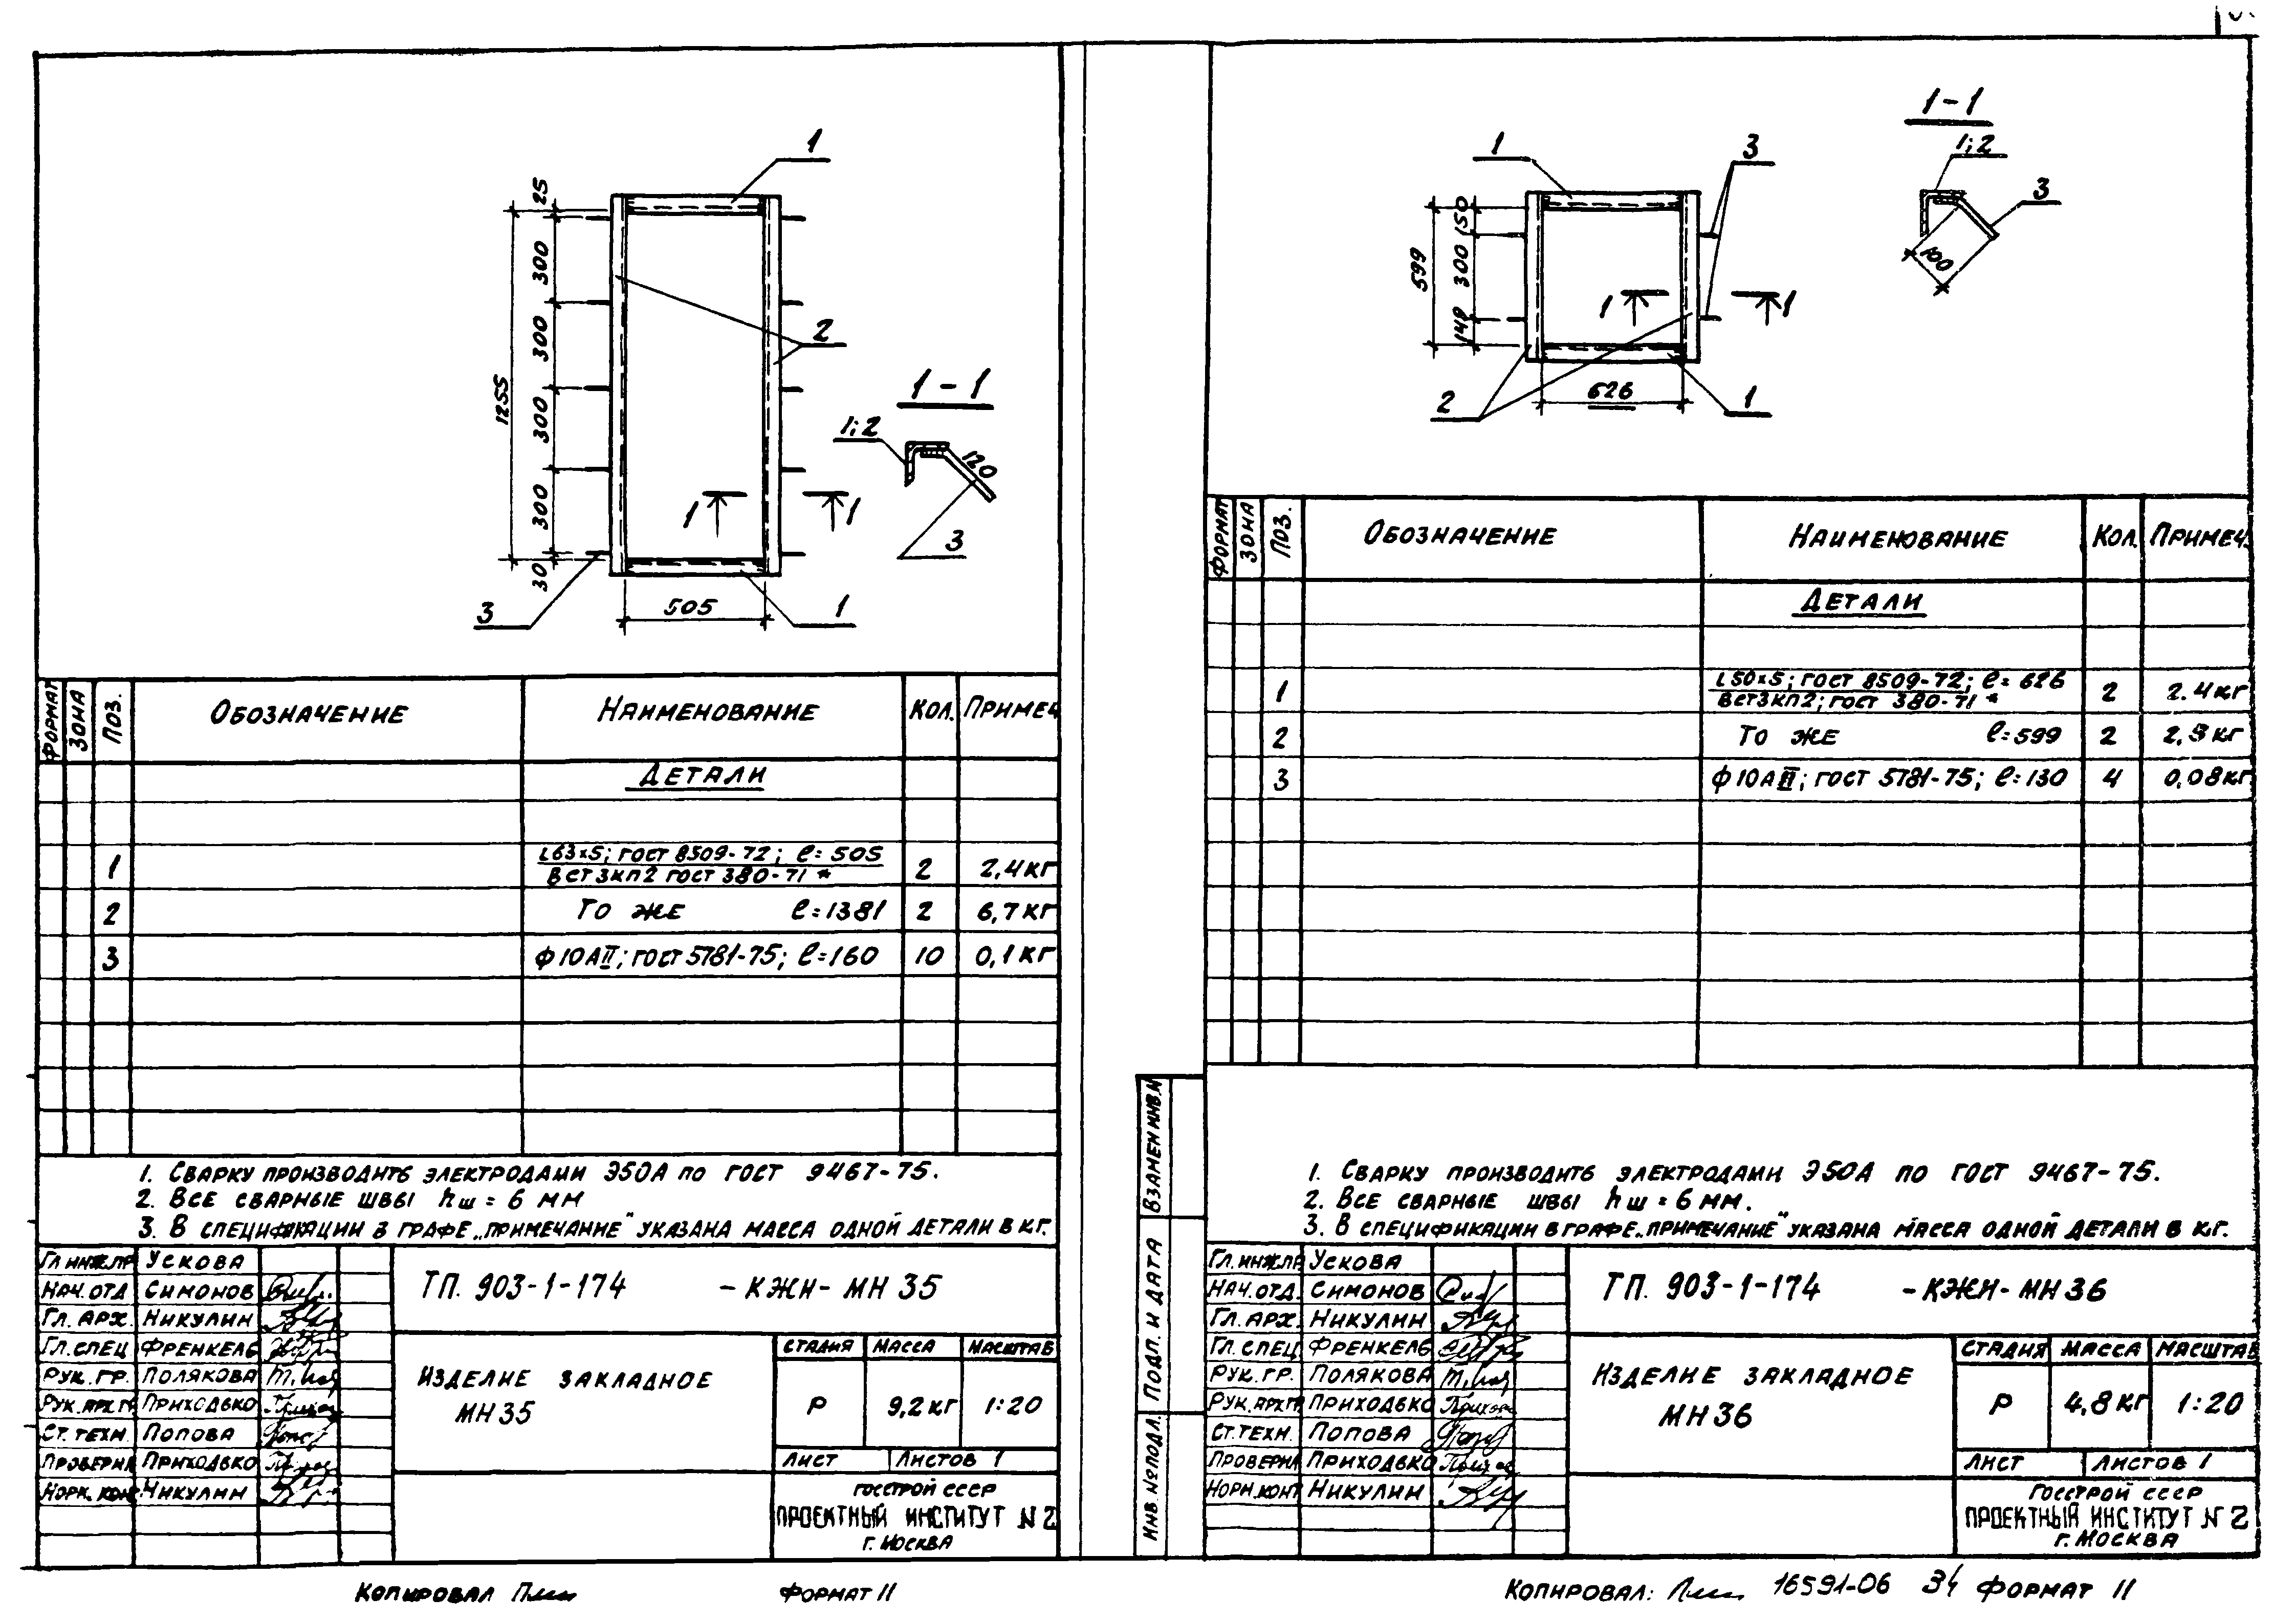 1
25
300
300
300
300
30
1255
2
1-1
1;2
120
3
1 1
3
505
1
ФОРМАТ ЗОНА ПОЗ. ОБОЗНАЧЕНИЕ НАИМЕНОВАНИЕ КОЛ. ПРИМЕЧ
ДЕТАЛИ
1 L63×5; ГОСТ 8509-72; ℓ=505 2 2,4 КГ
ВСТ3КП2 ГОСТ 380-71*
2 ТО ЖЕ ℓ=1381 2 6,7 КГ
3 ф10АII; ГОСТ 5781-75; ℓ=160 10 0,1 КГ
1. СВАРКУ ПРОИЗВОДИТЬ ЭЛЕКТРОДАМИ Э50А ПО ГОСТ 9467-75.
2. ВСЕ СВАРНЫЕ ШВЫ hш=6 ММ
3. В СПЕЦИФИКАЦИИ В ГРАФЕ „ПРИМЕЧАНИЕ" УКАЗАНА МАССА ОДНОЙ ДЕТАЛИ В КГ.
ГЛ ИНЖ.ПР УСКОВА
НАЧ. ОТД СИМОНОВ
ГЛ. АРХ. НИКУЛИН
ГЛ.СПЕЦ ФРЕНКЕЛЬ
РУК. ГР. ПОЛЯКОВА
РУК. АРХ.ГР ПРИХОДЬКО
СТ. ТЕХН. ПОПОВА
ПРОВЕРИЛ ПРИХОДЬКО
НОРМ. КОНТ НИКУЛИН
ТП. 903-1-174 -КЖИ-МН 35
ИЗДЕЛИЕ ЗАКЛАДНОЕ
МН35
СТАДИЯ МАССА МАСШТАБ
Р 9,2 КГ 1:20
ЛИСТ ЛИСТОВ 1
ГОССТРОЙ СССР
ПРОЕКТНЫЙ ИНСТИТУТ N 2
Г. МОСКВА
КОПИРОВАЛ ФОРМАТ 11
1-1
1;2
3
100
1
3
150
300
149
599
1 1
2
626
1
ФОРМАТ ЗОНА ПОЗ. ОБОЗНАЧЕНИЕ НАИМЕНОВАНИЕ КОЛ. ПРИМЕЧ.
ДЕТАЛИ
1 L50×5; ГОСТ 8509-72; ℓ=626 2 2.4 КГ
ВСТ3КП2; ГОСТ 380-71*
2 ТО ЖЕ ℓ=599 2 КГ
3 ф10АII; ГОСТ 5781-75; ℓ=130 4 0,08 КГ
1. СВАРКУ ПРОИЗВОДИТЬ ЭЛЕКТРОДАМИ Э50А ПО ГОСТ 9467-75.
2. ВСЕ СВАРНЫЕ ШВЫ hш=6 ММ.
3. В СПЕЦИФИКАЦИИ В ГРАФЕ „ПРИМЕЧАНИЕ" УКАЗАНА МАССА ОДНОЙ ДЕТАЛИ В КГ.
ВЗАМЕН ИНВ.N
ПОДП. И ДАТА
ИНВ. № ПОДЛ.
ГЛ. ИНЖ.ПР УСКОВА
НАЧ. ОТД. СИМОНОВ
ГЛ. АРХ. НИКУЛИН
ГЛ. СПЕЦ ФРЕНКЕЛЬ
РУК. ГР. ПОЛЯКОВА
РУК. АРХ.ГР ПРИХОДЬКО
СТ. ТЕХН. ПОПОВА
ПРОВЕРИЛ ПРИХОДЬКО
НОРМ. КОНТ НИКУЛИН
ТП. 903-1-174 -КЖИ-МН 36
ИЗДЕЛИЕ ЗАКЛАДНОЕ
МН36
СТАДИЯ МАССА МАСШТАБ
Р 4,8 КГ 1:20
ЛИСТ ЛИСТОВ 1
ГОССТРОЙ СССР
ПРОЕКТНЫЙ ИНСТИТУТ N 2
Г. МОСКВА
КОПИРОВАЛ: 16591-06 34 ФОРМАТ 11